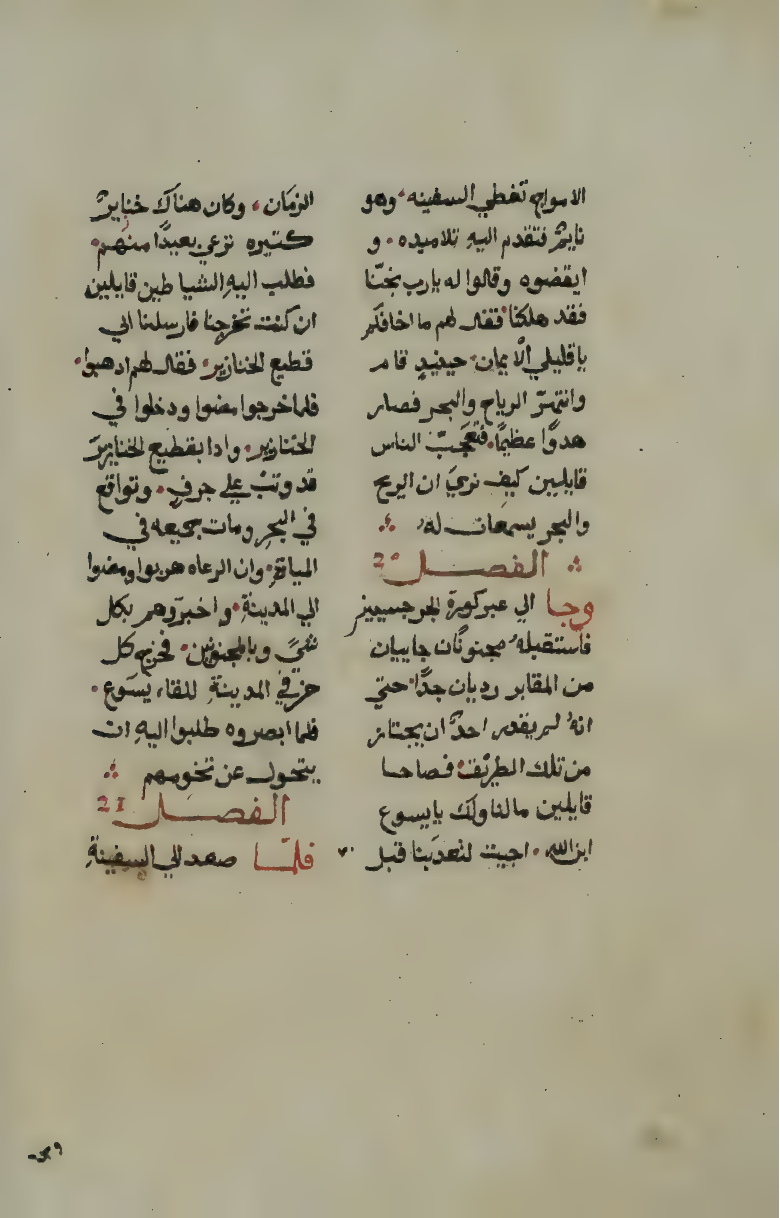 الامواج تغطي السفينه وهو
نايمٌ فتقدم اليه تلاميده و
ايقضوه وقالوا له يارب نجّنا
فقد هلكنا فقال لهم ما اخافكم
ياقليلي الايمان حينيدٍ قام
وانتهرّ الرياح والبحر فصار
هدوًا عظيمًا فتعجبّ الناس
قايلين كيف نريَ ان الريح
والبحر يسمعان له
الفصل 20
وجا الي عبر كورة الجرجسيين
فاستقبله مجنونان جاييان
من المقابر رديان جدًّا حتي
انهُ لم يقدر احدٌ ان يجتاز
من تلك الطريق فصاحا
قايلين مالنا ولك يا يسوع
ابن الله اجيت لتعدبنا قبل
الزمان وكان هناك خنايرٌ
كتيره ترعي بعيدًا منهم
فطلب اليهِ الشياطين قايلين
ان كنت تخرجنا فارسلنا الي
قطيع الخنازير فقال لهم ادهبوا
فلما خرجوا مضوا ودخلوا في
الخنازير وادا بقطيع الخنازير
قد وتب علي جرفٍ وتواقع
في البحر ومات جميعه في
المياة وان الرعاه هربوا ومضوا
الي المدينةِ واخبروهم بكل
شيً وبالمجنونين فخرج كل
من في المدينةِ للقاء يسوع
فلما ابصروه طلبوا اليهِ ان
يتحول عن تخومهم
الفصل 21
فلمّا صعد الي السفينةِ